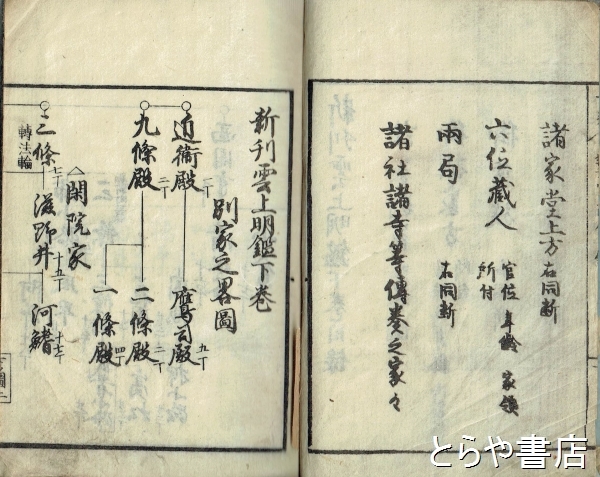 諸家堂上方 右同断
六位蔵人 官位 年齢 家領
所付
両局 右同断
諸社諸寺等傳奏之家々
新刊雲上明鑑下巻
別家之畧圖
近衞殿 一丁 鷹司殿 九丁
九條殿 二條殿 二丁
一條殿 四丁
閑院家
三條 七丁 滋野井 十五丁 河鰭 十七丁
轉法輪
とらや書店